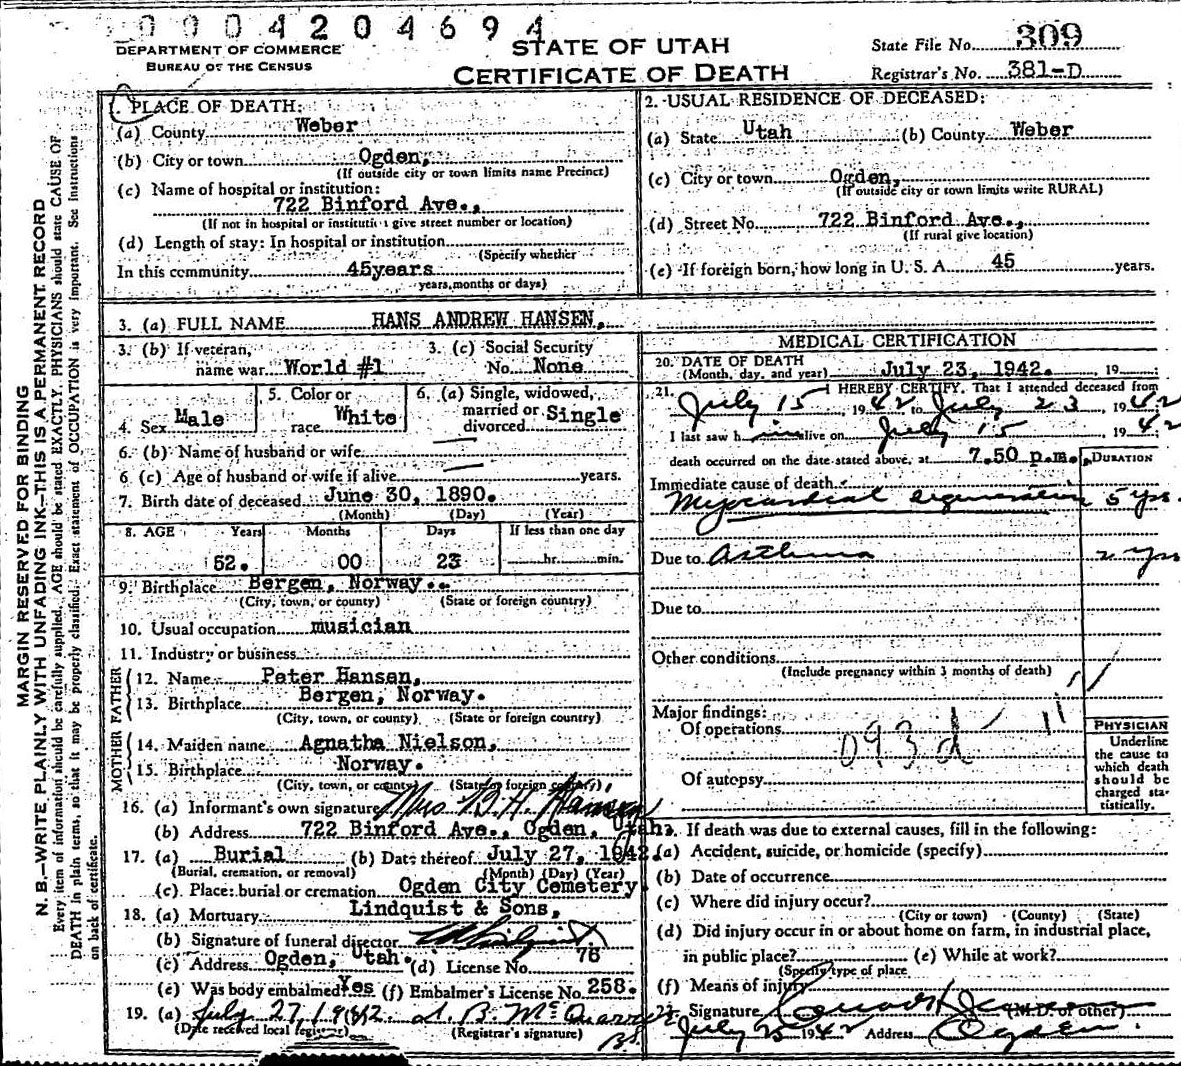 0004204694
DEPARTMENT OF COMMERCE
BUREAU OF THE CENSUS
STATE OF UTAH
CERTIFICATE OF DEATH
State File No. 309
Registrar's No. 381-D
MARGIN RESERVED FOR BINDING
N. B.—WRITE PLAINLY WITH UNFADING INK—THIS IS A PERMANENT RECORD
Every item of information should be carefully supplied. AGE should be stated EXACTLY. PHYSICIANS should state CAUSE OF
DEATH in plain terms, so that it may be properly classified. Exact statement of OCCUPATION is very important. See instructions
on back of certificate.
1. PLACE OF DEATH:
(a) County Weber
(b) City or town Ogden,
(If outside city or town limits name Precinct)
(c) Name of hospital or institution:
722 Binford Ave.,
(If not in hospital or institution give street number or location)
(d) Length of stay: In hospital or institution
(Specify whether
In this community 45years
years, months or days)
2. USUAL RESIDENCE OF DECEASED:
(a) State Utah (b) County Weber
(c) City or town Ogden,
(If outside city or town limits write RURAL)
(d) Street No. 722 Binford Ave.,
(If rural give location)
(e) If foreign born, how long in U. S. A. 45 years.
3. (a) FULL NAME HANS ANDREW HANSEN,
3. (b) If veteran,
name war World #1
3. (c) Social Security
No. None
4. Sex Male
5. Color or
race White
6. (a) Single, widowed,
married or
divorced Single
6. (b) Name of husband or wife
6 (c) Age of husband or wife if alive years.
7. Birth date of deceased June 30, 1890.
(Month) (Day) (Year)
8. AGE Years Months Days If less than one day
52. 00 23 hr. min.
9. Birthplace Bergen, Norway.
(City, town, or county) (State or foreign country)
10. Usual occupation musician
11. Industry or business
FATHER
12. Name Peter Hansen,
13. Birthplace Bergen, Norway.
(City, town, or county) (State or foreign country)
MOTHER
14. Maiden name Agnatha Nielson,
15. Birthplace Norway.
(City, town, or county) (State or foreign country)
16. (a) Informant's own signature Mrs B. H. Hansen
(b) Address 722 Binford Ave., Ogden, Utah.
17. (a) Burial (b) Date thereof July 27, 1942.
(Burial, cremation, or removal) (Month) (Day) (Year)
(c) Place: burial or cremation Ogden City Cemetery.
18. (a) Mortuary Lindquist & Sons,
(b) Signature of funeral director
(c) Address Ogden, Utah. (d) License No. 76
(e) Was body embalmed? Yes (f) Embalmer's License No. 258.
19. (a) July 27, 1942.
(Date received local register) (Registrar's signature)
MEDICAL CERTIFICATION
20. DATE OF DEATH
(Month, day, and year) July 23, 1942. , 19
21. I HEREBY CERTIFY, That I attended deceased from
July 15, 1942 to July 23, 1942
I last saw him alive on July 15, 1942
death occurred on the date stated above, at 7.50 p.m. DURATION
Immediate cause of death
Myocardial degeneration 5 yrs.
Due to Asthma 2 yrs
Due to
Other conditions
(Include pregnancy within 3 months of death)
Major findings:
Of operations
093d
Of autopsy
PHYSICIAN
Underline
the cause to
which death
should be
charged sta-
tistically.
If death was due to external causes, fill in the following:
(a) Accident, suicide, or homicide (specify)
(b) Date of occurrence
(c) Where did injury occur?
(City or town) (County) (State)
(d) Did injury occur in or about home on farm, in industrial place,
in public place? (e) While at work?
(Specify type of place
(f) Means of injury
Signature (M.D. or other)
July 25 1942 Address Ogden